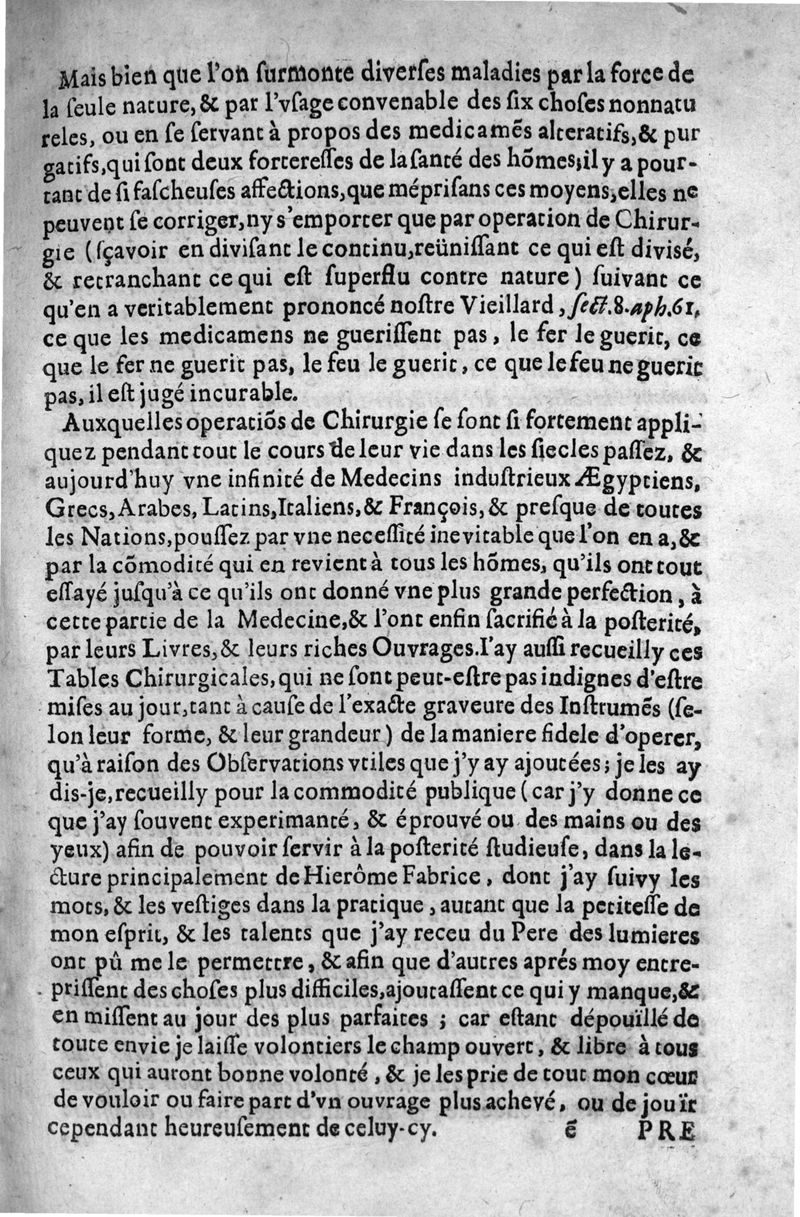 Mais bien que l'on ſurmonte diverſes maladies par la force de
la ſeule nature, & par l'vſage convenable des ſix choſes nonnatu
reles, ou en ſe ſervant à propos des medicamẽs alteratifs, & pur
gatifs, qui ſont deux fortereſſes de la ſanté des hõmes; il y a pour-
tant de ſi faſcheuſes affections, que mépriſans ces moyens, elles ne
peuvent ſe corriger, ny s'emporter que par operation de Chirur-
gie (ſçavoir en diviſant le continu, reüniſſant ce qui eſt diviſé,
& retranchant ce qui eſt ſuperflu contre nature) ſuivant ce
qu'en a veritablement prononcé noſtre Vieillard, ſect. 8. aph. 61,
ce que les medicamens ne gueriſſent pas, le fer le guerit, ce
que le fer ne guerit pas, le feu le guerit, ce que le feu ne guerit
pas, il eſt jugé incurable.
Auxquelles operatiõs de Chirurgie ſe ſont ſi fortement appli-
quez pendant tout le cours de leur vie dans les ſiecles paſſez, &
aujourd'huy vne infinité de Medecins induſtrieux Ægyptiens,
Grecs, Arabes, Latins, Italiens, & François, & preſque de toutes
les Nations, pouſſez par vne neceſſité inevitable que l'on en a, &
par la cõmodité qui en revient à tous les hõmes, qu'ils ont tout
eſſayé juſqu'à ce qu'ils ont donné vne plus grande perfection, à
cette partie de la Medecine, & l'ont enfin ſacrifié à la poſterité,
par leurs Livres, & leurs riches Ouvrages. I'ay auſſi recueilly ces
Tables Chirurgicales, qui ne ſont peut-eſtre pas indignes d'eſtre
miſes au jour, tant à cauſe de l'exacte graveure des Inſtrumẽs (ſe-
lon leur forme, & leur grandeur) de la maniere fidele d'operer,
qu'à raiſon des Obſervations vtiles que j'y ay ajoutées; je les ay
dis-je, recueilly pour la commodité publique (car j'y donne ce
que j'ay ſouvent experimanté, & éprouvé ou des mains ou des
yeux) afin de pouvoir ſervir à la poſterité ſtudieuſe, dans la le-
cture principalement de Hierôme Fabrice, dont j'ay ſuivy les
mots, & les veſtiges dans la pratique, autant que la petiteſſe de
mon eſprit, & les talents que j'ay receu du Pere des lumieres
ont pû me le permettre, & afin que d'autres aprés moy entre-
priſſent des choſes plus difficiles, ajoutaſſent ce qui y manque, &
en miſſent au jour des plus parfaites; car eſtant dépouïllé de
toute envie je laiſſe volontiers le champ ouvert, & libre à tous
ceux qui auront bonne volonté, & je les prie de tout mon cœur
de vouloir ou faire part d'vn ouvrage plus achevé, ou de jouïr
cependant heureuſement de celuy-cy. ẽ PRE